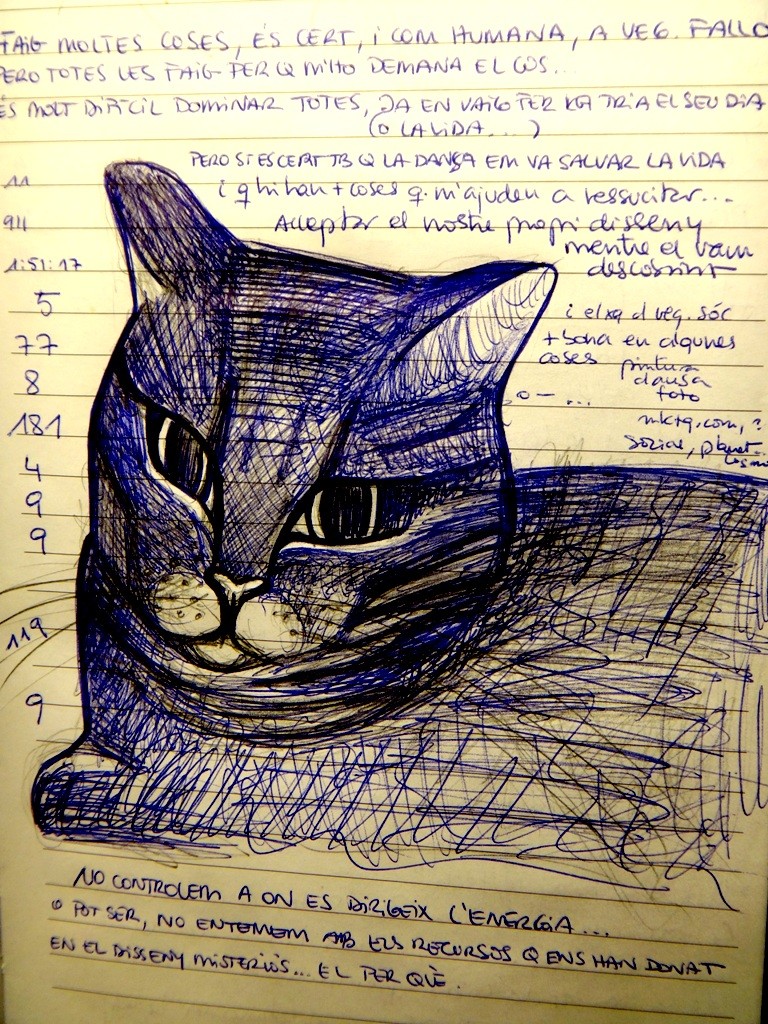 FAIG MOLTES COSES, ÉS CERT, i COM HUMANA, A VEG. FALLO
PERO TOTES LES FAIG PER Q M'HO DEMANA EL COS...
ÉS MOLT DIFÍCIL DOMINAR TOTES, JA EN VAIG FER TRIA EL SEU DIA
(O LA VIDA....)
PERO SI ES CERT TB Q LA DANÇA EM VA SALVAR LA VIDA
i q hi han + coses q. m'ajuden a ressucitar...
Acceptar el nostre propi disseny
mentre el vam
descobrint
i el q d veg. sóc
+ bona en algunes
coses pintura
dansa
foto
o — ...
mktg.com, ?
social, planet...
11
911
1:51:17
5
77
8
181
4
9
9
119
9
NO CONTROLEM A ON ES DIRIGEIX L'ENERGIA...
O POT SER, NO ENTENEM AMB ELS RECURSOS Q ENS HAN DONAT
EN EL DISSENY MISTERIÓS... EL PER QUÈ.